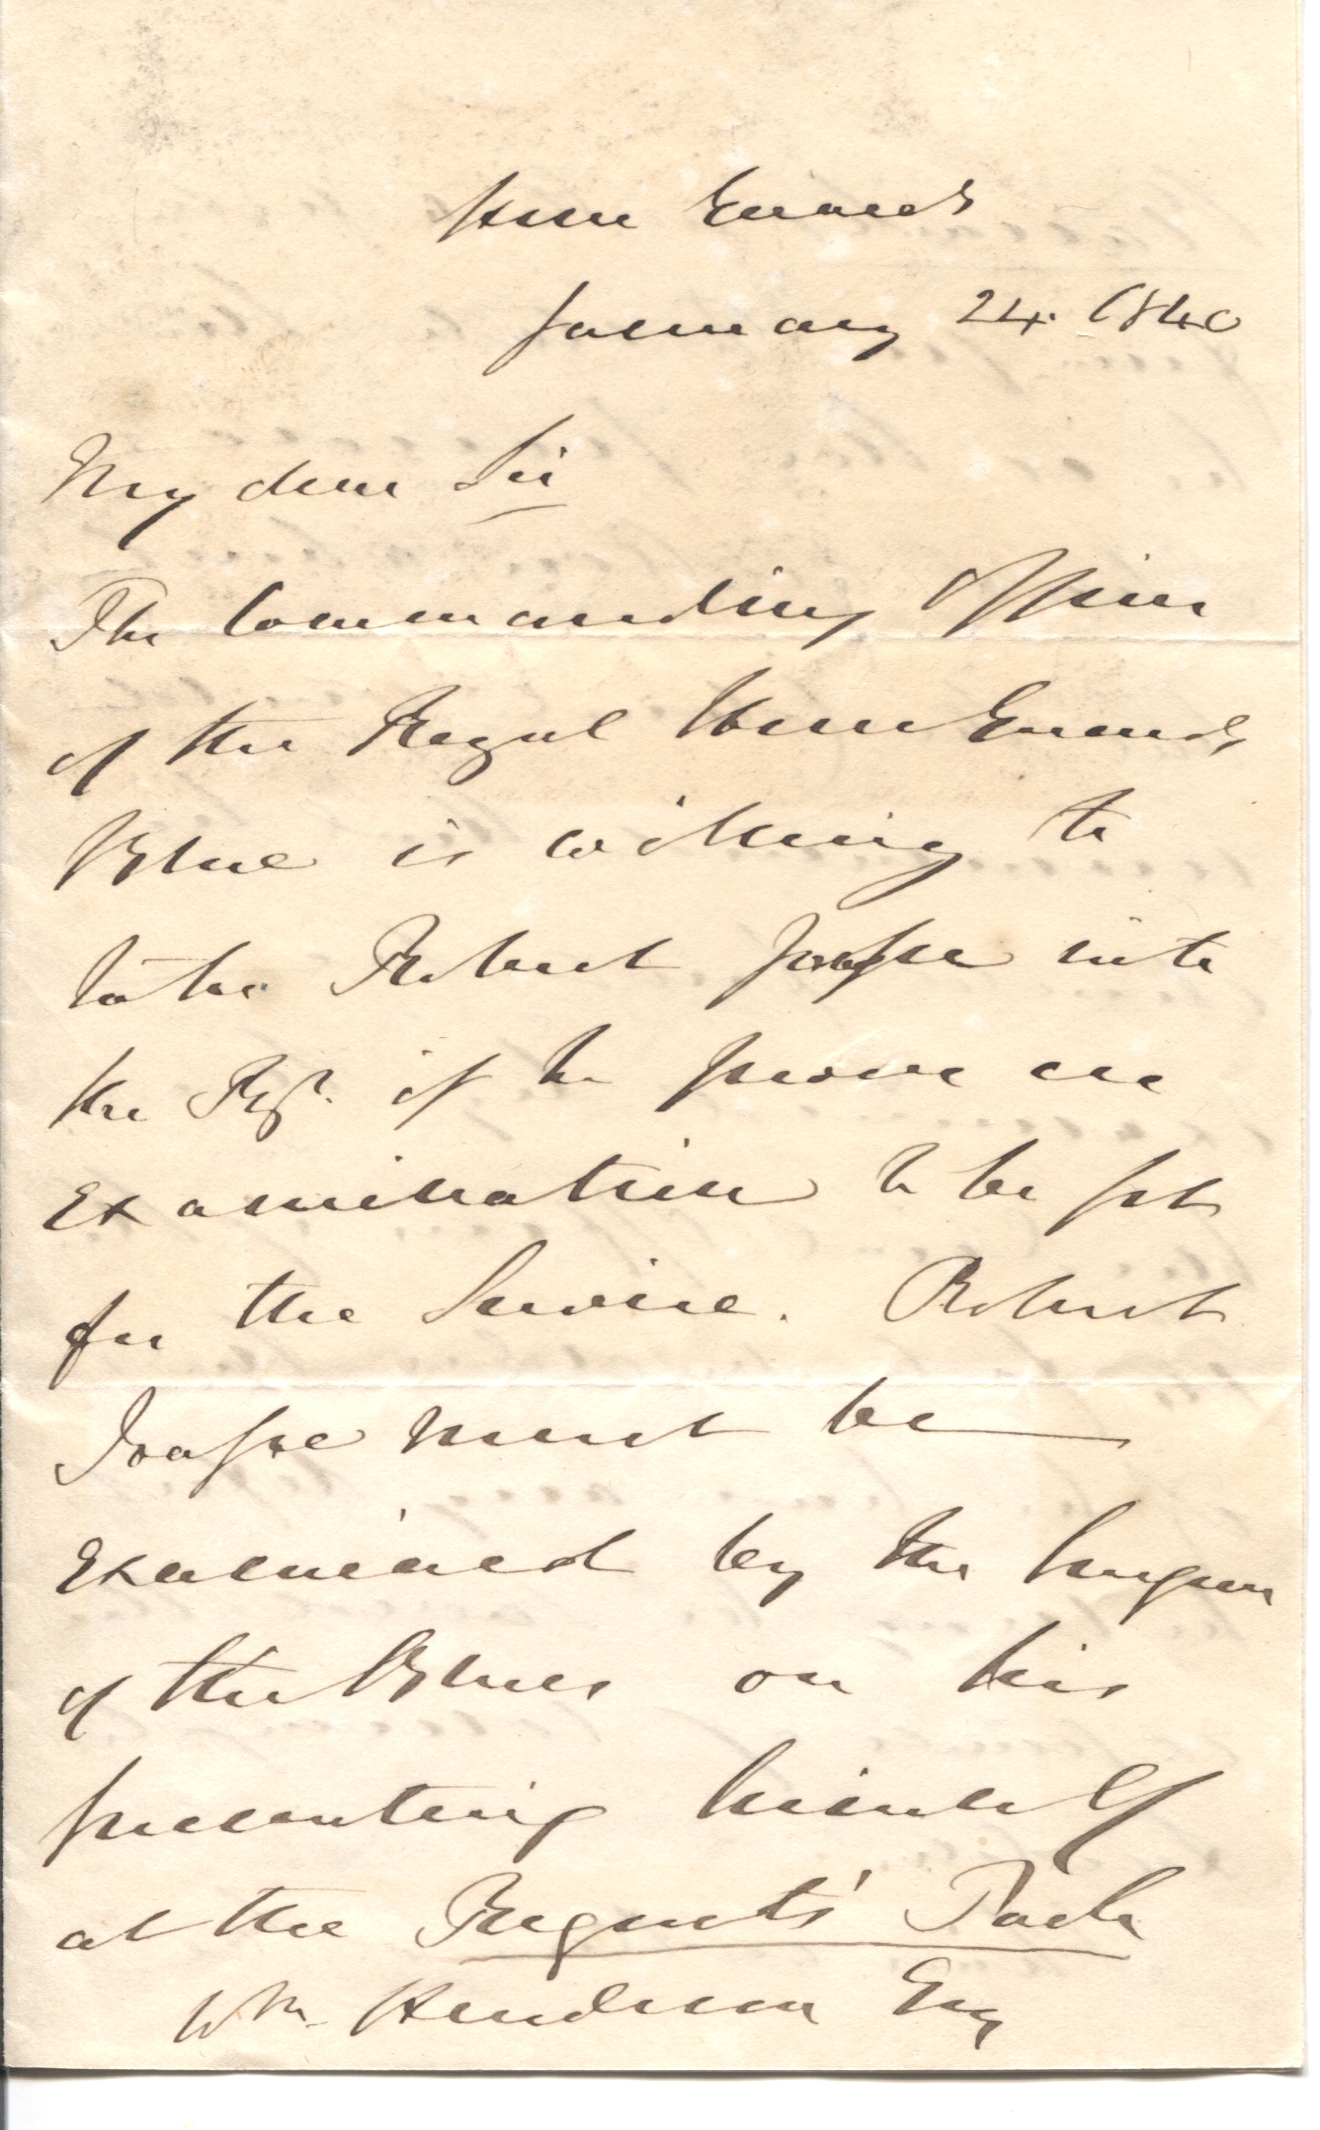 Horse Guards
January 24. 1840
My dear Sir
The Commanding Officer
of the Royal Horse Guards
Blue is willing to
take Robert into
the Regt. if he prove on
examination to be fit
for the Service. Robert
must be
examined by the Surgeon
of the Blues on his
presenting himself
at the Regents' Park
Wm. Henderson Esq